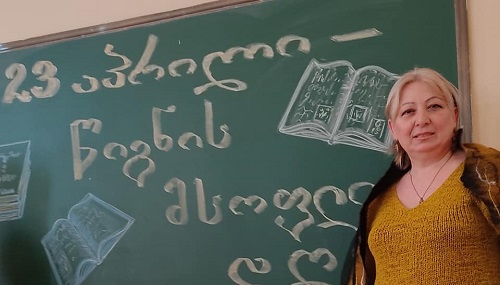 23 აპრილი –
წიგნის
მსოფლი
დღ